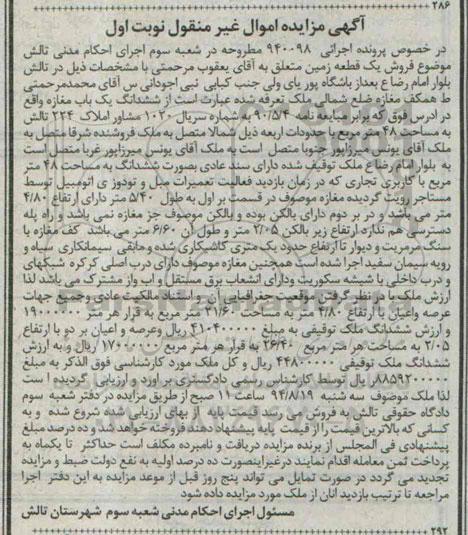 ۲۸۶
آگهی مزایده اموال غیر منقول نوبت اول
در خصوص پرونده اجرائی ۹۴۰۰۹۸ مطروحه در شعبه سوم اجرای احکام مدنی تالش
موضوع فروش یک قطعه زمین متعلق به آقای یعقوب مرحمتی با مشخصات ذیل در تالش
بلوار امام رضا ع بعداز باشگاه پور پای ولی جنب کبابی نبی اجودانی س آقای محمدمرحمتی
ط همکف مغازه ضلع شمالی ملک تعرفه شده عبارت است از ششدانگ یک باب مغازه واقع
در ادرس فوق که برابر مبایعه نامه ۹۰/۵/۴ به شماره سریال ۱۰۲۰ مشاور املاک ۲۲۴ تالش
به مساحت ۴۸ متر مربع با حدودات اربعه ذیل شمالا متصل به ملک فروشنده شرقا متصل به
ملک آقای یونس میرزاپور جنوبا متصل است به ملک آقای یونس میرزاپور غربا متصل است
به بلوار امام رضا ع ملک توقیف شده دارای سند عادی بصورت ششدانگ به مساحت ۴۸ متر
مربع با کاربری تجاری که در زمان بازدید فعالیت تعمیرات مبل و تودوزی اتومبیل توسط
مستاجر رویت گردیده مغازه موصوف در قسمت بر اول به طول ۵/۴۰ متر دارای ارتفاع ۴/۸۰
متر می باشد و در بر دوم دارای بالکن بوده و بالکن موصوف جز مغازه نمی باشد و راه پله
دسترسی هم ندارد ارتفاع زیر بالکن ۲/۰۵ متر و طول آن ۶/۶۰ متر می باشد کف مغازه با
سنگ مرمریت و دیوار تا ارتفاع حدود یک متری کاشیکاری شده و مابقی سیمانکاری سیاه و
رویه سیمان سفید اجرا شده است همچنین مغازه موصوف دارای درب اصلی کرکره شبکهای
و درب داخلی با شیشه سکوریت ودارای انشعاب برق مستقل و اب واز مشترک می باشد لذا
ارزش ملک با در نظر گرفتن موقعیت جغرافیایی آن و استناد مالکیت عادی وجمیع جهات
عرصه واعیان با ارتفاع ۴/۸۰ متر به مساحت ۲۱/۶۰ متر مربع به قرار هر متر ۱۹۰۰۰۰۰۰
و ارزش ششدانگ ملک توقیفی به مبلغ ۴۱۰۴۰۰۰۰۰ ریال وعرصه و اعیان بر دو با ارتفاع
۲/۰۵ به مساحت هر متر مربع ۲۶/۴۰ به قرار هر متر مربع ۱۷۰۰۰۰۰۰ ریال و به ارزش
ششدانگ ملک توقیفی ۴۴۸۰۰۰۰۰۰ ریال و کل ملک مورد کارشناسی فوق الذکر به مبلغ
۸۸۵۹۲۰۰۰۰۰ر یال توسط کارشناس رسمی دادگستری بر اورد و ارزیابی گردیده است
لذا ملک موصوف سه شنبه ۹۴/۸/۱۹ ساعت ۱۱ صبح از طریق مزایده در دفتر شعبه سوم
دادگاه حقوقی تالش به فروش می رسد قیمت پایه از بهای ارزیابی شده شروع شده و به
کسانی که بالاترین قیمت را از قیمت پایه پیشنهاد دهند فروخته خواهد شد و ده درصد مبلغ
پیشنهادی فی المجلس از برنده مزایده دریافت و نامبرده مکلف است حداکثر تا یکماه به
پرداخت ثمن معامله اقدام نمایند درغیراینصورت ده درصد اولیه به نفع دولت ضبط و مزایده
تجدید می گردد در صورت تمایل می تواند پنج روز قبل از موعد مزایده به این دفتر اجرا
مراجعه تا ترتیب بازدید انان از ملک مورد مزایده داده شود
مسئول اجرای احکام مدنی شعبه سوم شهرستان تالش
۲۹۲